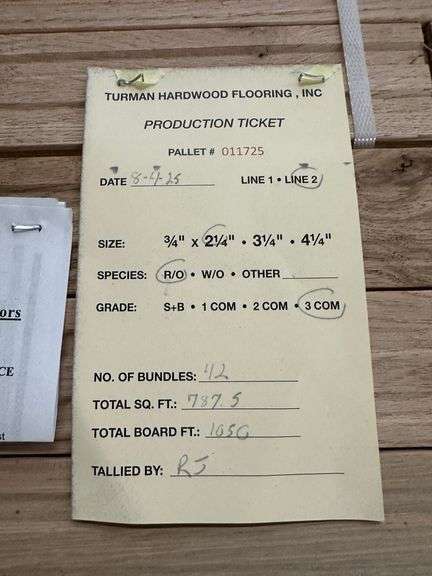 TURMAN HARDWOOD FLOORING , INC
PRODUCTION TICKET
PALLET # 011725
DATE 8-4-25 LINE 1 • LINE 2
SIZE: 3/4" x 2 1/4" • 3 1/4" • 4 1/4"
SPECIES: R/O • W/O • OTHER
GRADE: S+B • 1 COM • 2 COM • 3 COM
NO. OF BUNDLES: 42
TOTAL SQ. FT.: 787.5
TOTAL BOARD FT.: 1050
TALLIED BY: RJ
ors
CE
st